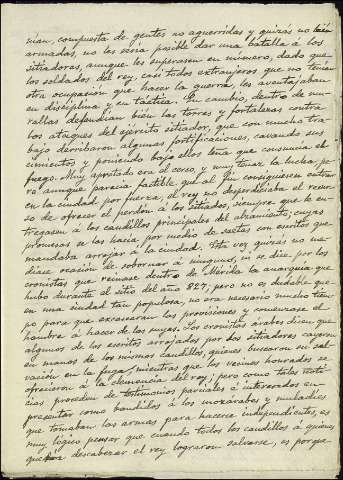 nían, compuesta de gentes no aguerridas y quizás no bien
armadas, no les sería posible dar una batalla á los
sitiadores, aunque les superasen en número, dado que
los soldados del rey, casi todos extranjeros que no tenían
otra ocupación que hacer la guerra, les aventajaban
en disciplina y en táctica. En cambio, dentro de mu-
rallas defendían bien las torres y fortalezas contra
los ataques del ejército sitiador, que con mucho tra-
bajo derribaron algunas fortificaciones, cavando sus
cimientos y poniendo bajo ellos leña que consumía el
fuego. Muy apretado era el cerco, y muy tenaz la lucha, pe-
ro aunque parecía factible que al fin consiguiesen entrar
en la ciudad por fuerza, el rey no desperdiciaba el recur-
so de ofrecer el perdón á los sitiados, siempre que le en-
tregasen á los caudillos principales del alzamiento, cuyas
promesas se las hacía por medio de saetas con escritos que
mandaba arrojar á la ciudad. Esta vez quizás no se
diese ocasión de sobornar á ninguno, ni se dice por los
cronistas que reinase dentro de Mérida la anarquía que
hubo durante el sitio del año 827, pero no es dudable que
en una ciudad tan populosa, no era necesario mucho tiem-
po para que escasearan las provisiones y comenzase el
hambre á hacer de las suyas. Los cronistas árabes dicen que
algunos de los escritos arrojados por los sitiadores cayeron
en manos de los mismos caudillos, quienes buscaron su sal-
vación en la fuga, mientras que los vecinos honrados se
ofrecieron á la clemencia del rey; pero como tales noti-
cias proceden de testimonios parciales é interesados en
presentar como bandidos á los mozárabes y muladíes
que tomaban las armas para hacerse independientes, es
muy lógico pensar que cuando todos los caudillos á quienes
quería descabezar el rey lograron salvarse, es porque